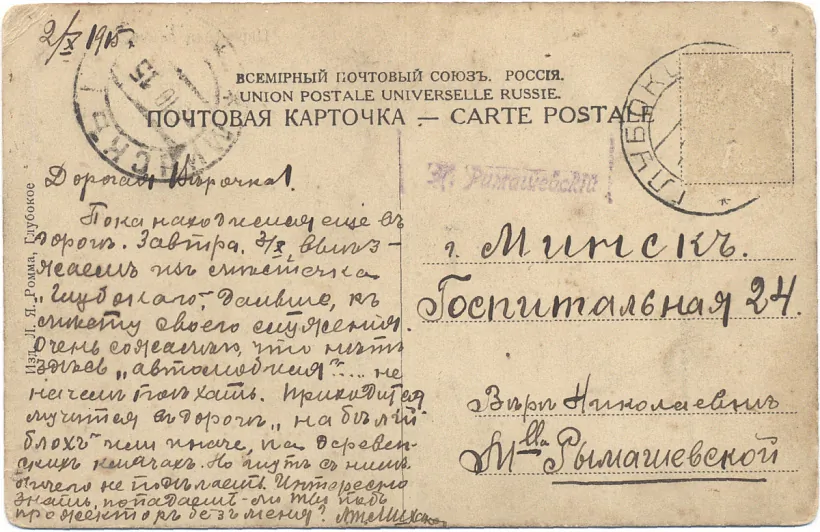 2/X 1915 г.
МИНСКЪ
10 15
ВСЕМІРНЫЙ ПОЧТОВЫЙ СОЮЗЪ. РОССІЯ.
UNION POSTALE UNIVERSELLE RUSSIE.
ПОЧТОВАЯ КАРТОЧКА — CARTE POSTALE
ГЛУБОКО
Римашевскій
Дорогая Вѣрочка!
Пока находимся еще въ
дорогѣ. Завтра, 3/X, выѣз-
жаемъ изъ мѣстечка
„Глубокаго", дальше, къ
мѣсту своего служенія.
Очень сожалѣю, что нѣтъ
здѣсь „автомобиля".... не
на чемъ поѣхать. Приходится
мучится въ дорогѣ „на бѣлой
блохѣ" или иначе, на деревен-
скихъ клячахъ. Но путь съ ними
ничего не подѣлаешь. Интересно
знать, попадаетъ-ли
прожекторъ безъ меня?
г. Минскъ.
Госпитальная 24.
Вѣрѣ Николаевнѣ
Мllе Рымашевской
Изд. Л. Я. Ромма, Глубокое